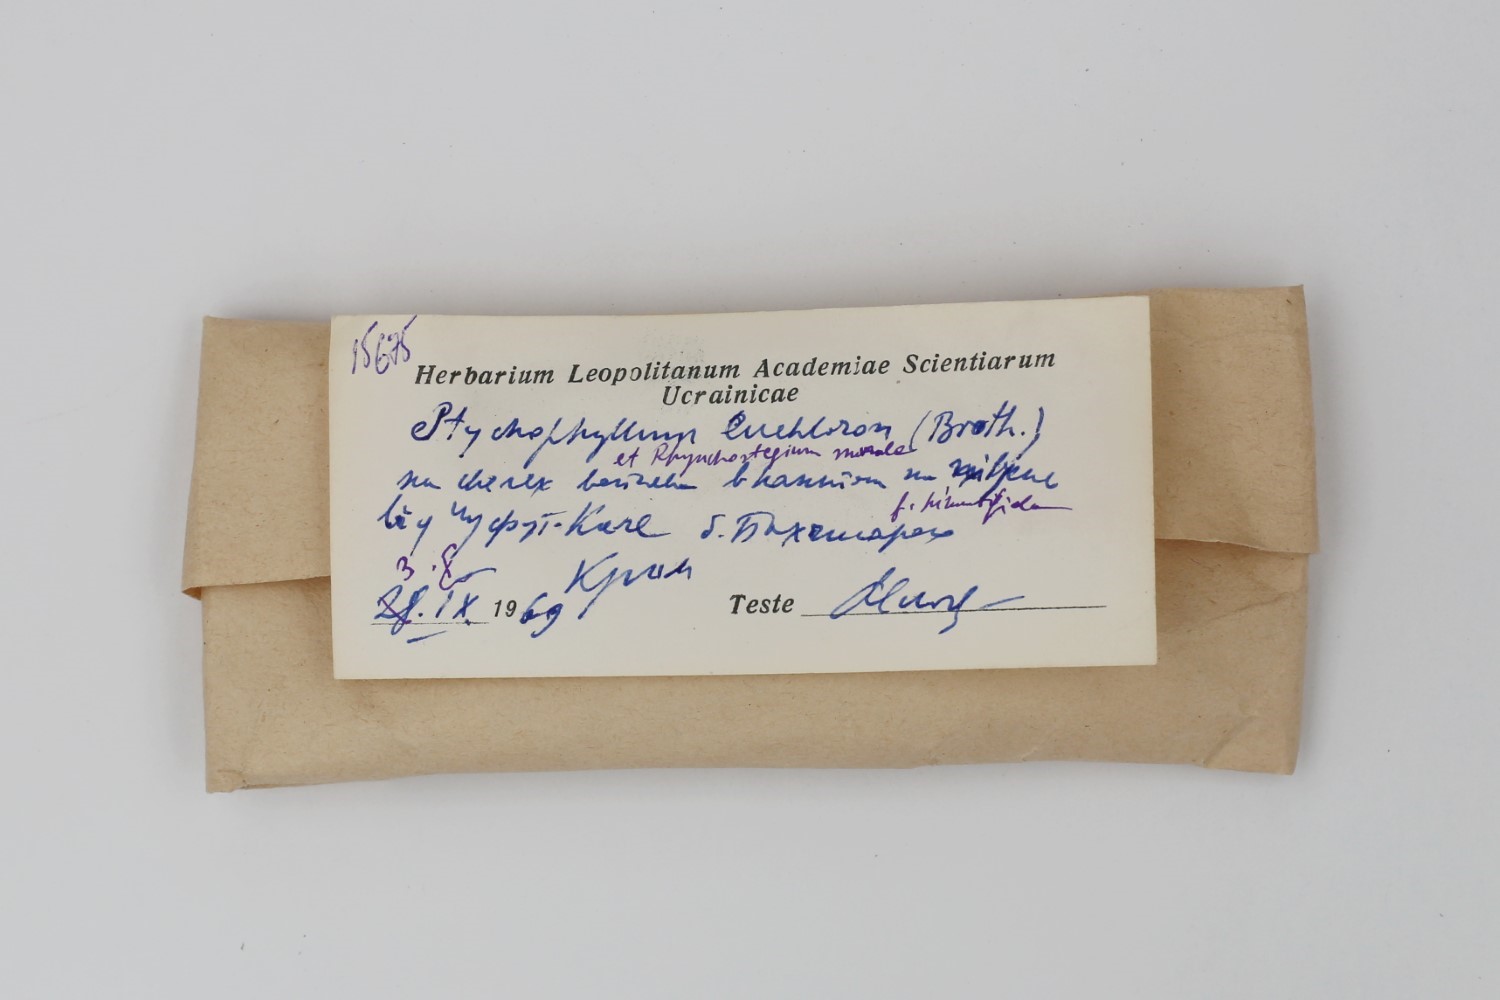 15675
Herbarium Leopolitanum Academiae Scientiarum
Ucrainicae
Ptychophyllum euchloron (Broth.)
et Rhynchostegium murale
на скелях на
від Чуфут-Кале б. Бахчисараю
3.X
28.IX. 1969 Крим
Teste